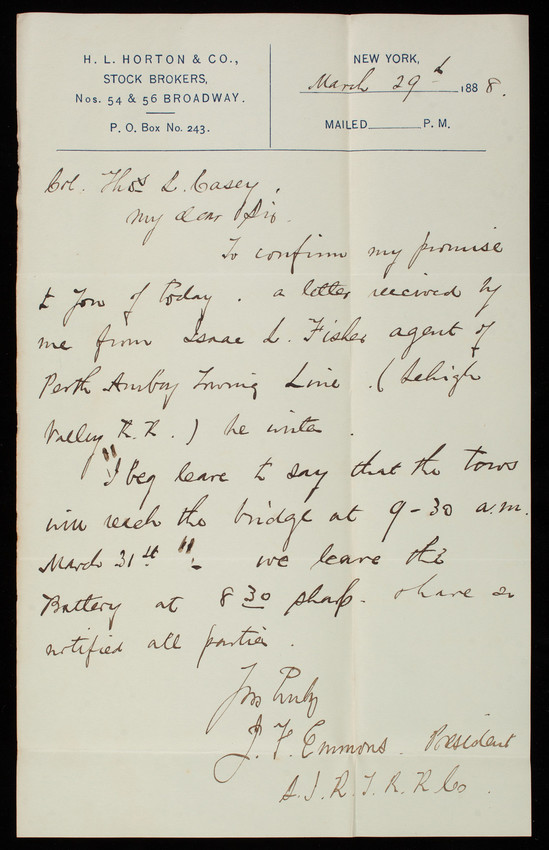 H. L. HORTON & CO.,
STOCK BROKERS,
Nos. 54 & 56 BROADWAY.
P. O. Box No. 243.
NEW YORK,
March 29th 1888.
MAILED P. M.
Col. Thos L. Casey,
My dear Sir
To confirm my promise
to you of today. a letter received by
me from Isaac L. Fisher agent of
Perth Amboy Towing Line. (Lehigh
Valley R. R.) he writes.
"I beg leave to say that the tows
will reach the bridge at 9-30 a.m.
March 31st". we leave the
Battery at 8 30 sharp. I have so
notified all parties.
Yrs Truly
J. F. Emmons. President
S. I. R. T. R. R. Co.